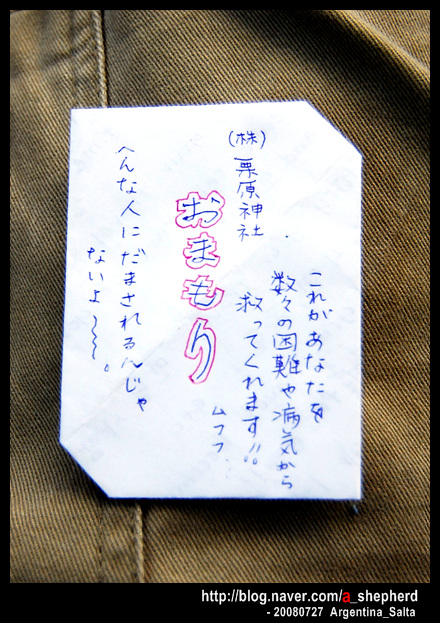 これがあなたを
数々の困難や病気から
救ってくれます!!
ムフフ
(株)栗原神社
おまもり
へんな人にだまされるんじゃ
ないよ〜〜。
http://blog.naver.com/a_shepherd
- 20080727 Argentina_Salta